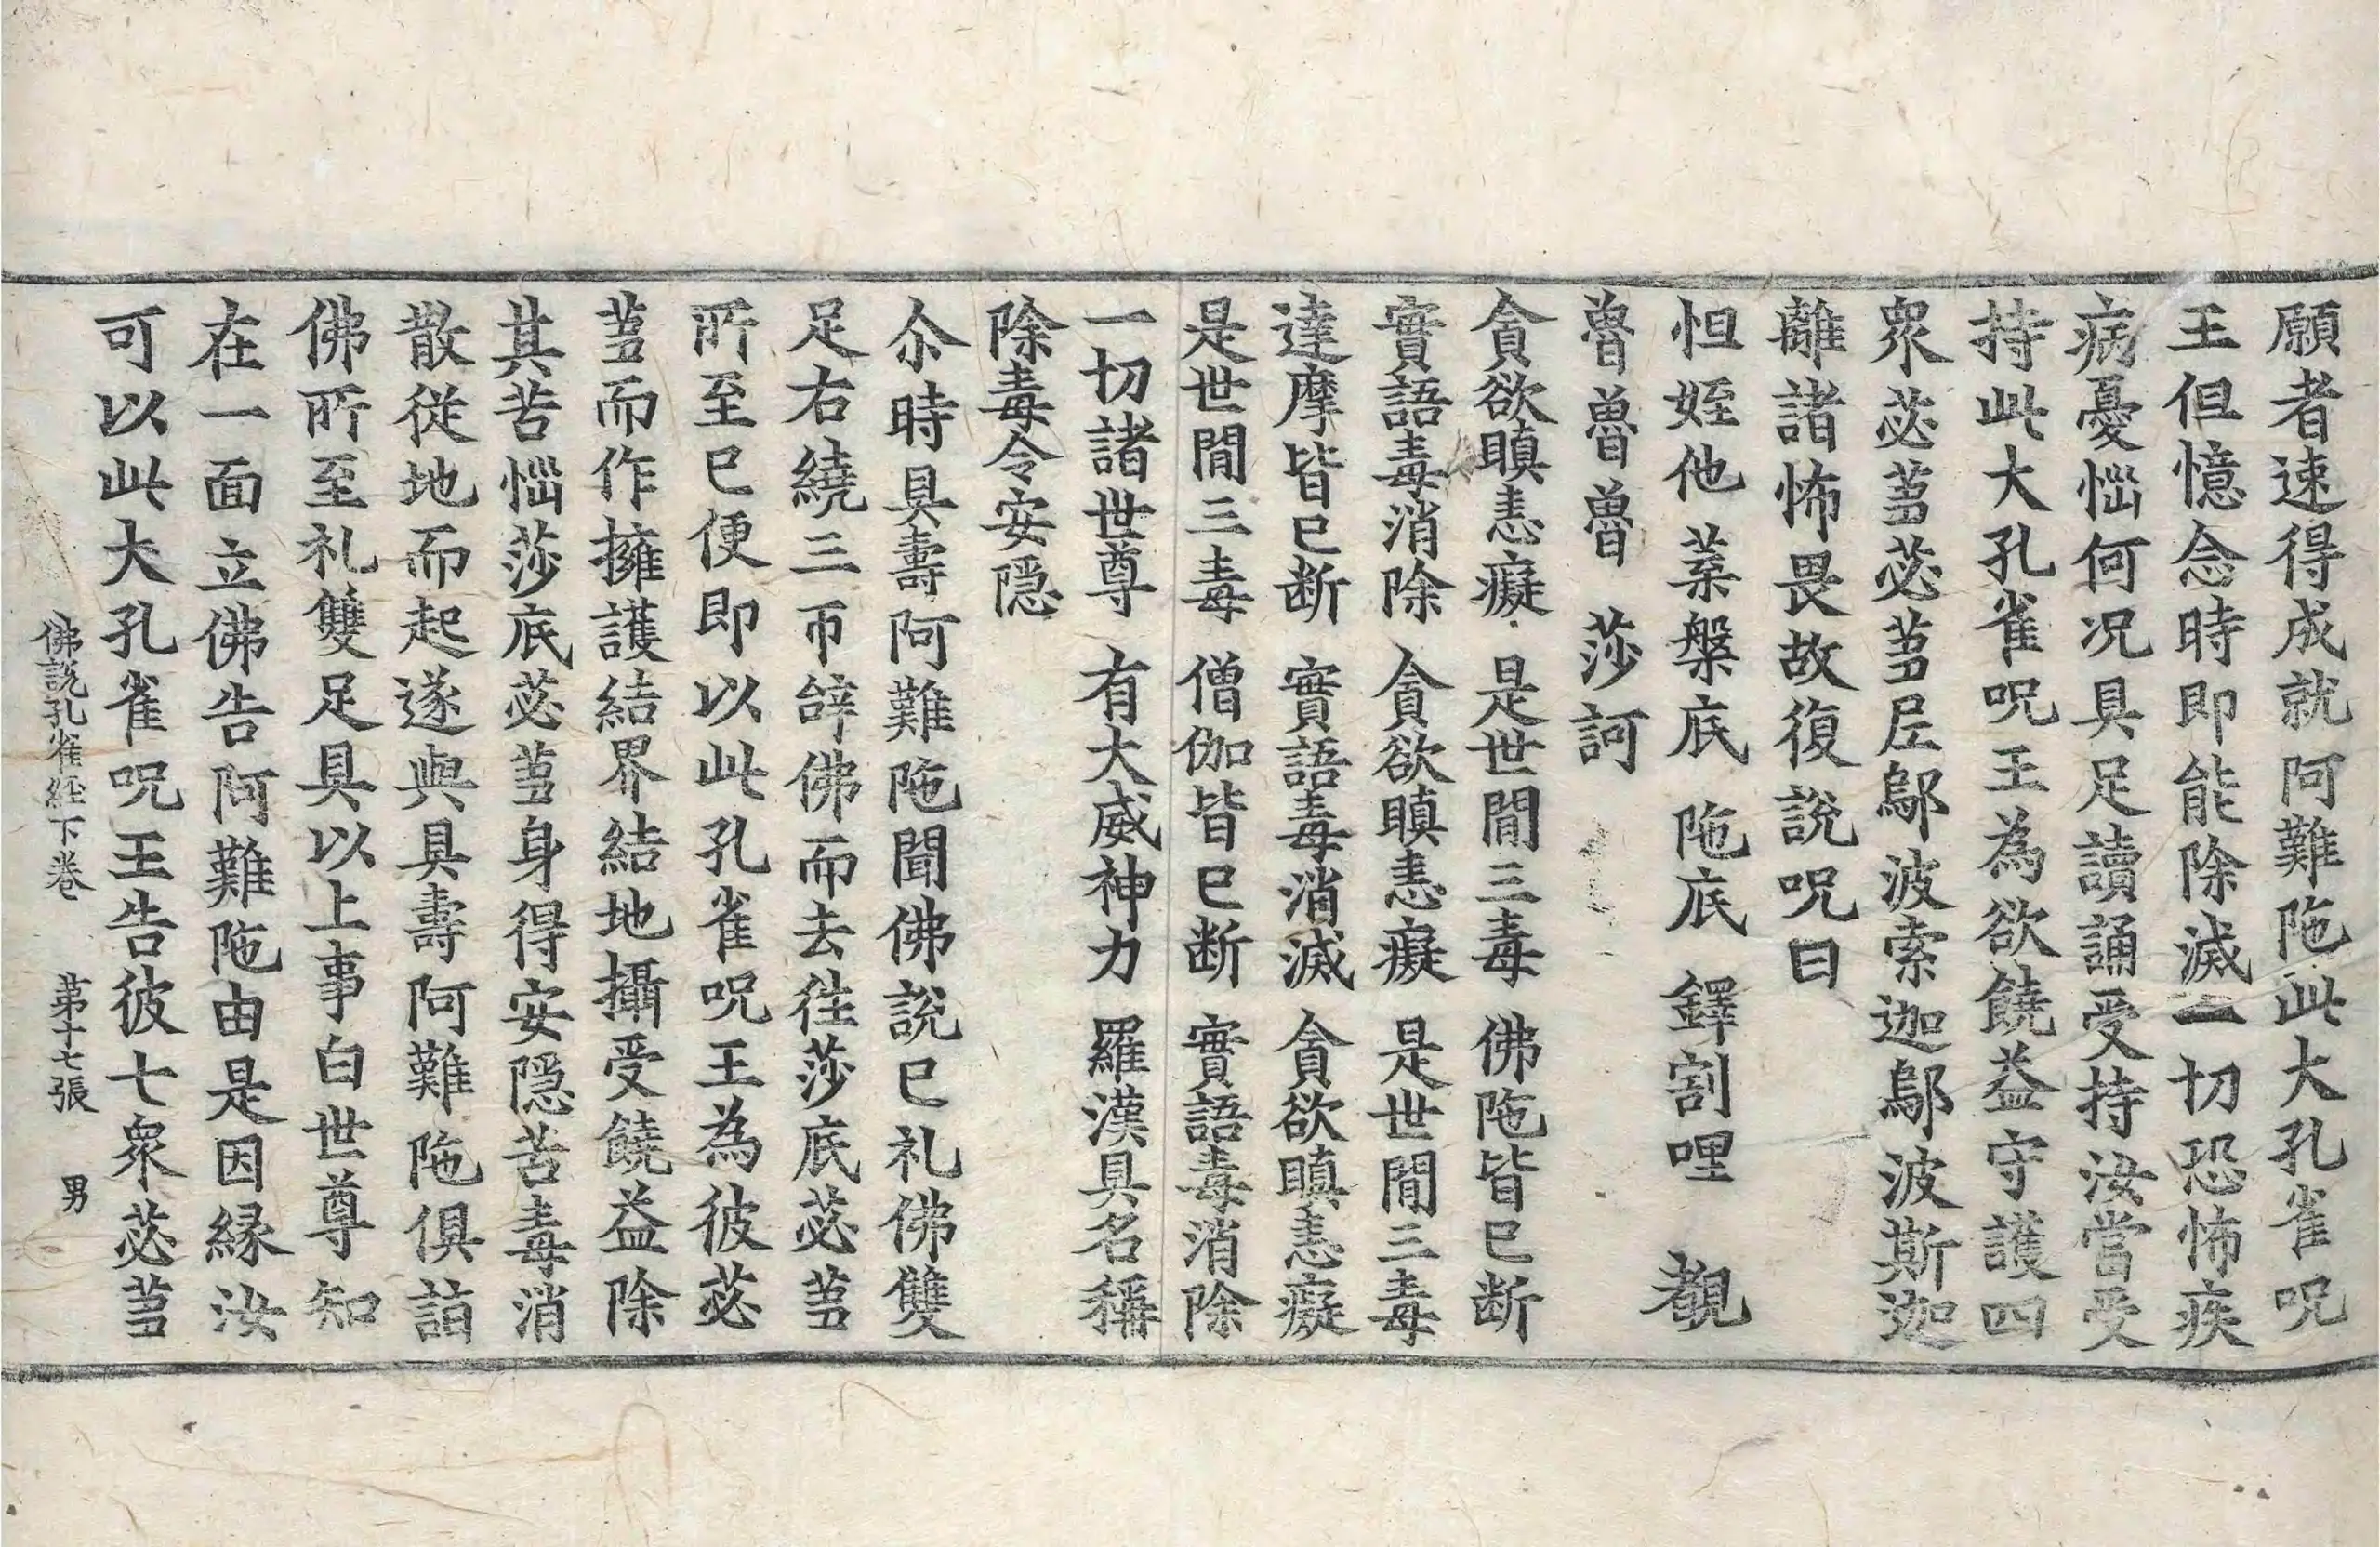 願者速得成就阿難陁此大孔雀呪
王但憶念時即能除滅一切恐怖疾
病憂惱何况具足讀誦受持汝當受
持此大孔雀呪王為欲饒益守護四
衆苾蒭苾蒭尼鄔波索迦鄔波斯迦
離諸怖畏故復說呪曰
怛姪他 葉槃底 陁底 鐸割哩
魯魯魯 莎訶
貪欲瞋恚癡 是世間三毒 佛陁皆已断
實語毒消除 貪欲瞋恚癡 是世間三毒
達摩皆已断 實語毒消滅 貪欲瞋恚癡
是世間三毒 僧伽皆已断 實語毒消除
一切諸世尊 有大威神力 羅漢具名稱
除毒令安隱
尒時具壽阿難陁聞佛說已礼佛雙
足右繞三帀辝佛而去徃莎底苾蒭
所至已便即以此孔雀呪王為彼苾
蒭而作擁護結界結地攝受饒益除
其苦惱莎底苾蒭身得安隱苦毒消
散從地而起遂與具壽阿難陁俱詣
佛所至礼雙足具以上事白世尊知
在一面立佛告阿難陁由是因縁汝
可以此大孔雀呪王告彼七衆苾蒭
佛說孔雀經下卷 第十七張 男